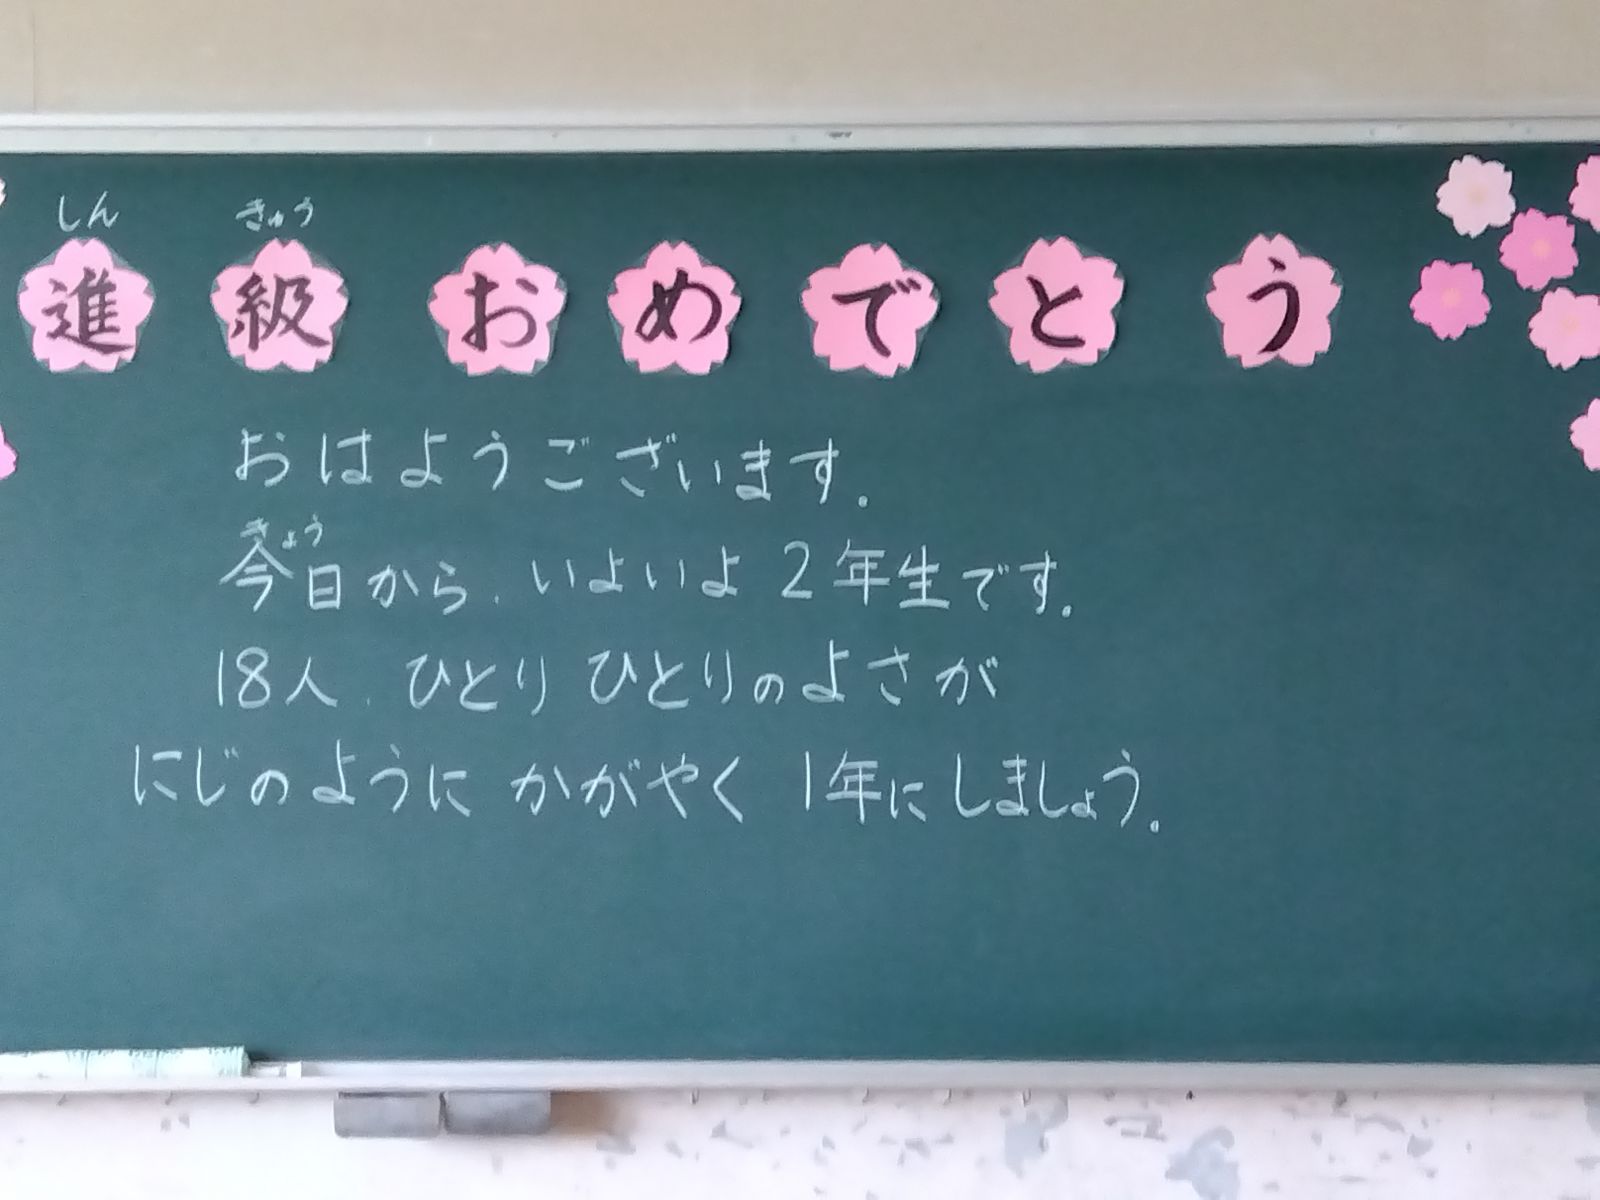 しん きゅう
進級おめでとう
おはようございます。
きょう
今日から、いよいよ2年生です。
18人、ひとりひとりのよさが
にじのように かがやく 1年にしましょう。